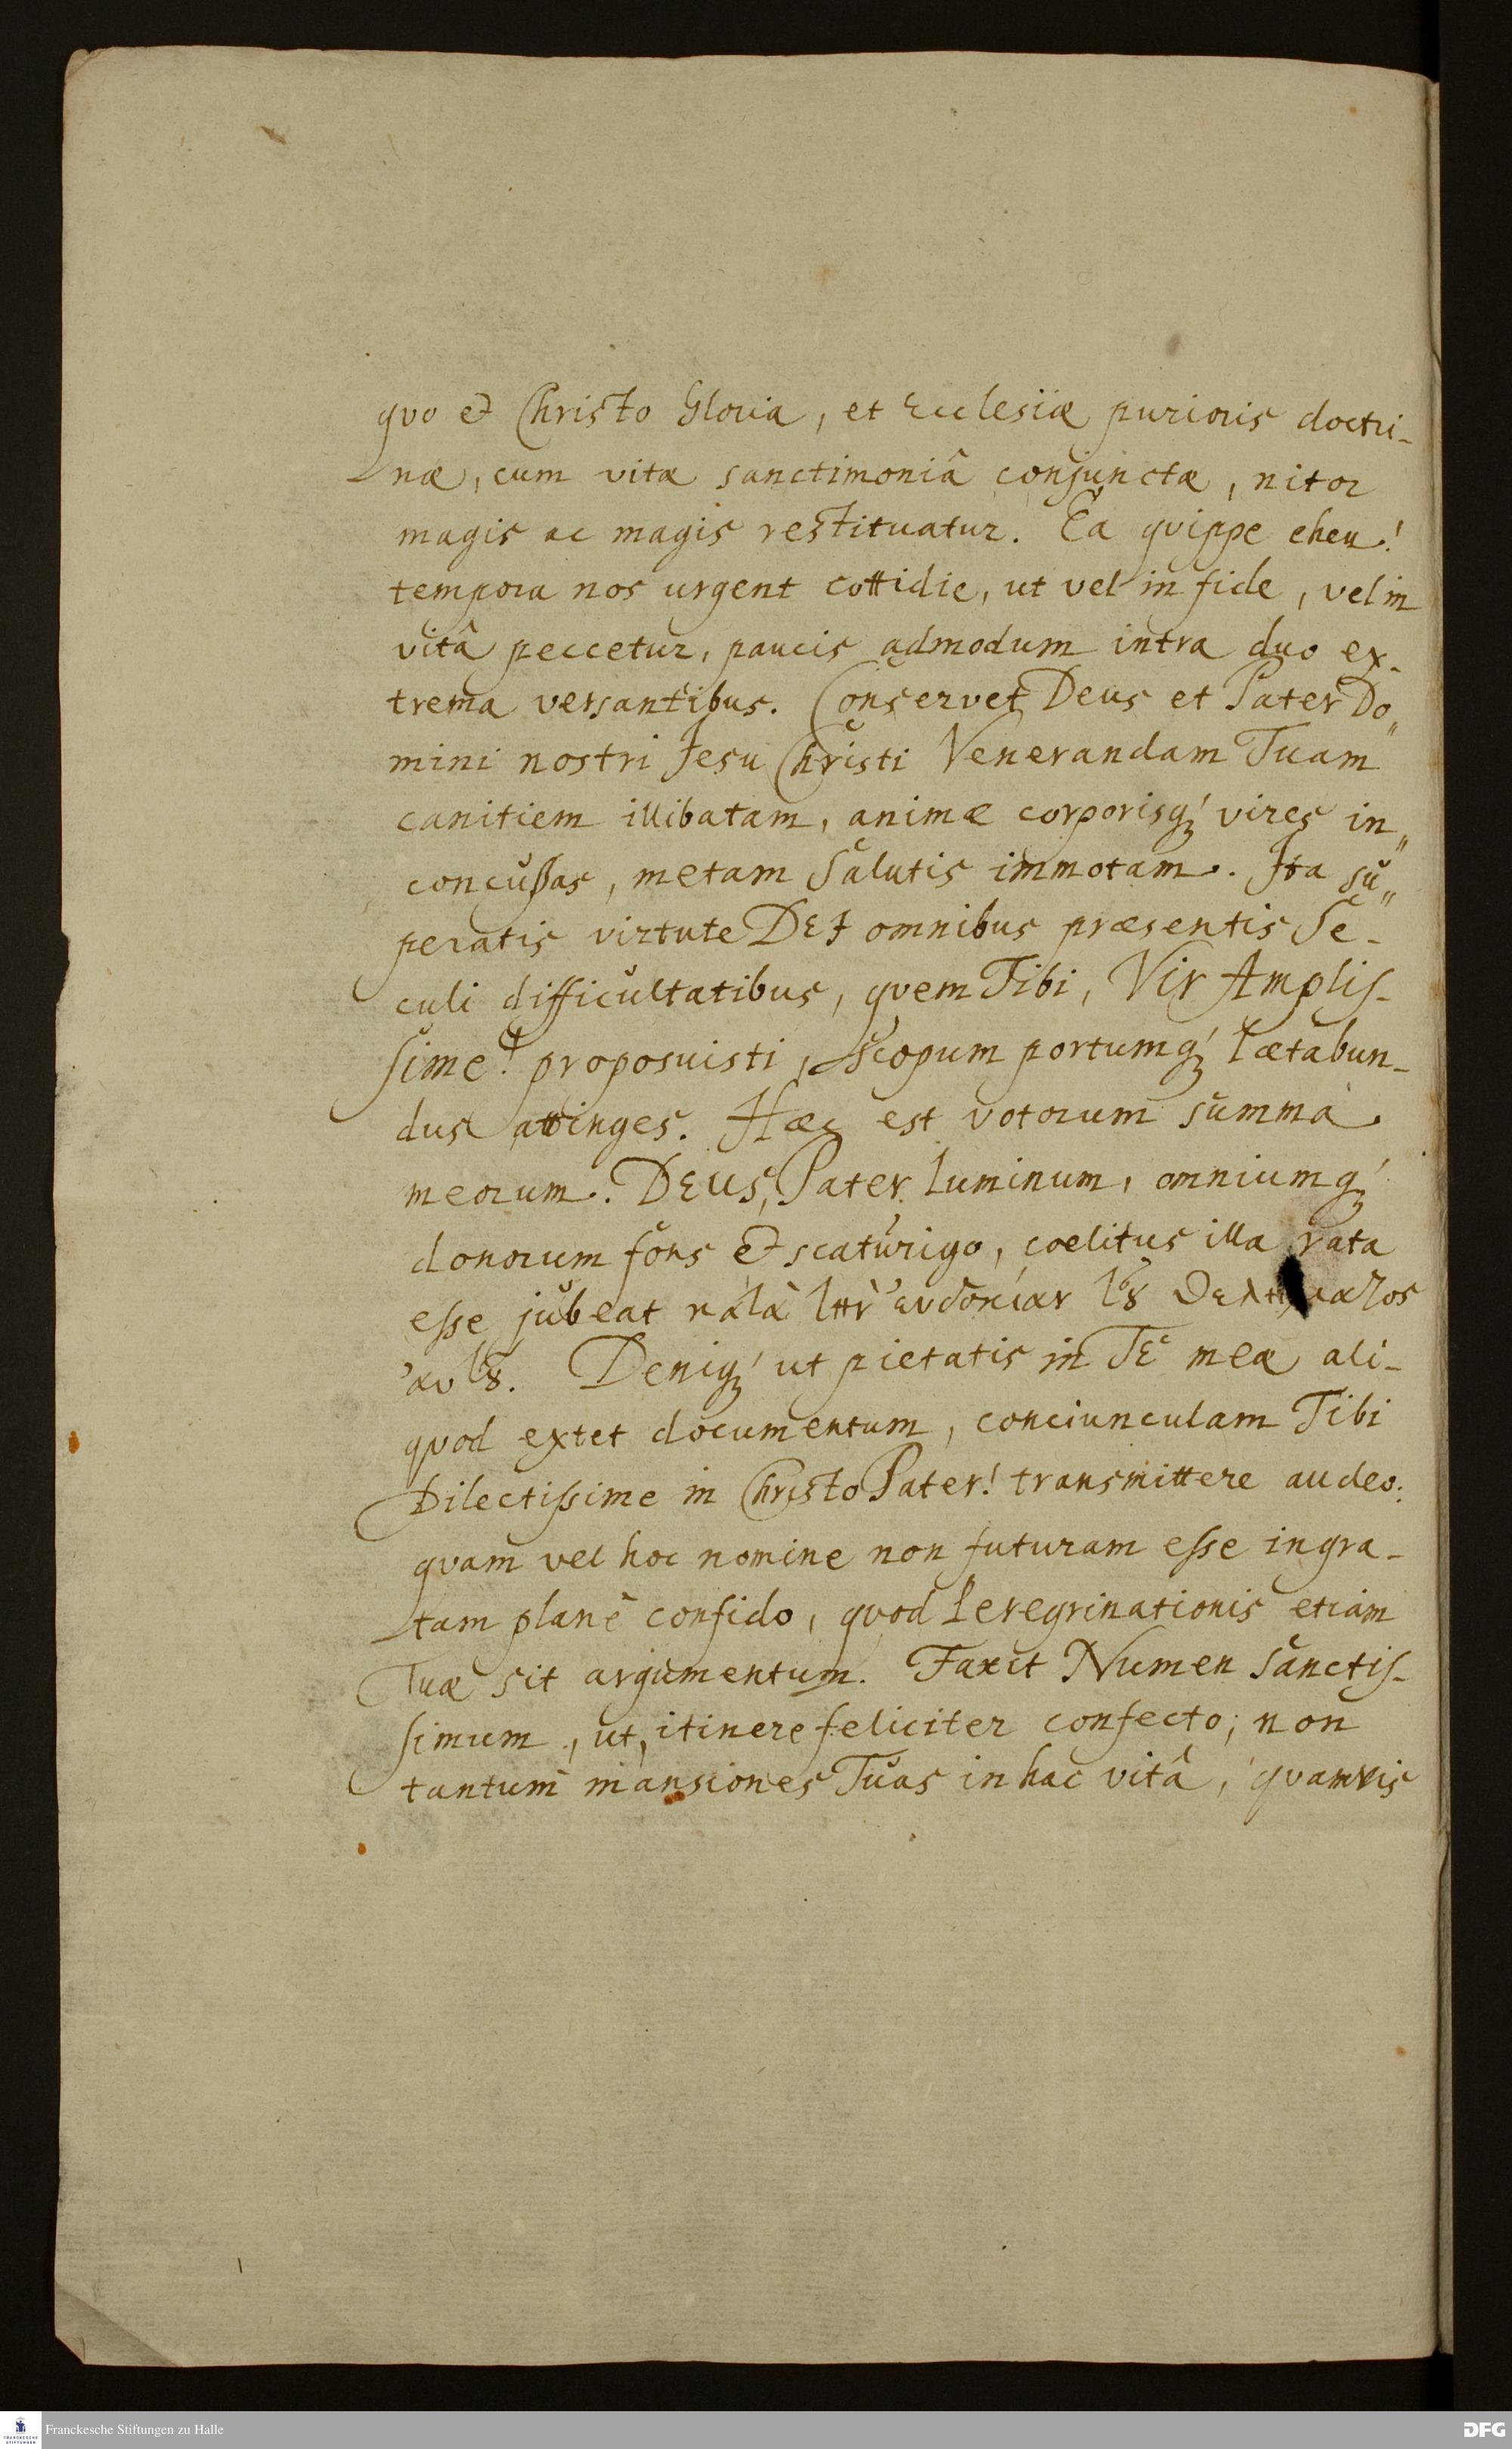 quo et Christo Gloria, et Ecclesiæ purioris doctri-
næ, cum vitæ sanctimoniâ conjunctæ, nitor
magis ac magis restituatur. Ea quippe eheu!
tempora nos urgent cottidie, ut vel in fide, vel in
vitâ peccetur, paucis admodum intra duo ex-
trema versantibus. Conservet Deus et Pater Do„
mini nostri Jesu Christi Venerandam Tuam
canitiem illibatam, animæ corporisq́; vires in„
concußas, metam Salutis immotam. Ita su„
peratis virtute DEI omnibus præsentis Se-
culi difficultatibus, quem Tibi, Vir Amplis-
sime! proposuisti, scopum portumq́; lætabun-
dus attinges. Hæc est votorum summa
meorum. DEUS, Pater luminum, omniumq́;
donorum fons et scaturigo, coelitus illa rata
esse jubeat κατὰ τὴν ἐυδοκίαν τοῦ θελήματος
ἀυτοῦ. Deniq́; ut pietatis in TE meæ ali-
quod extet documentum, conciunculam Tibi
Dilectissime in Christo Pater! transmittere audeo:
quam vel hoc nomine non futuram esse ingra-
tam planè confido, quod Peregrinationis etiam
Tuæ sit argumentum. Faxit Numen Sanctis-
simum, ut, itinere feliciter confecto; non
tantum mansiones Tuas in hac vitâ, quamvis
Franckesche Stiftungen zu Halle
DFG